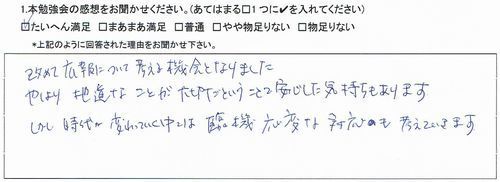 1.本勉強会の感想をお聞かせください。(あてはまる□1つに✔を入れてください)
☑たいへん満足 □まあまあ満足 □普通 □やや物足りない □物足りない
*上記のように回答された理由をお聞かせ下さい。
改めて広報について考える機会となりました
やはり地道なことが大切だということで安心した気持ちもあります
しかし時代が変わっていく中では臨機応変な対応も考えていきます